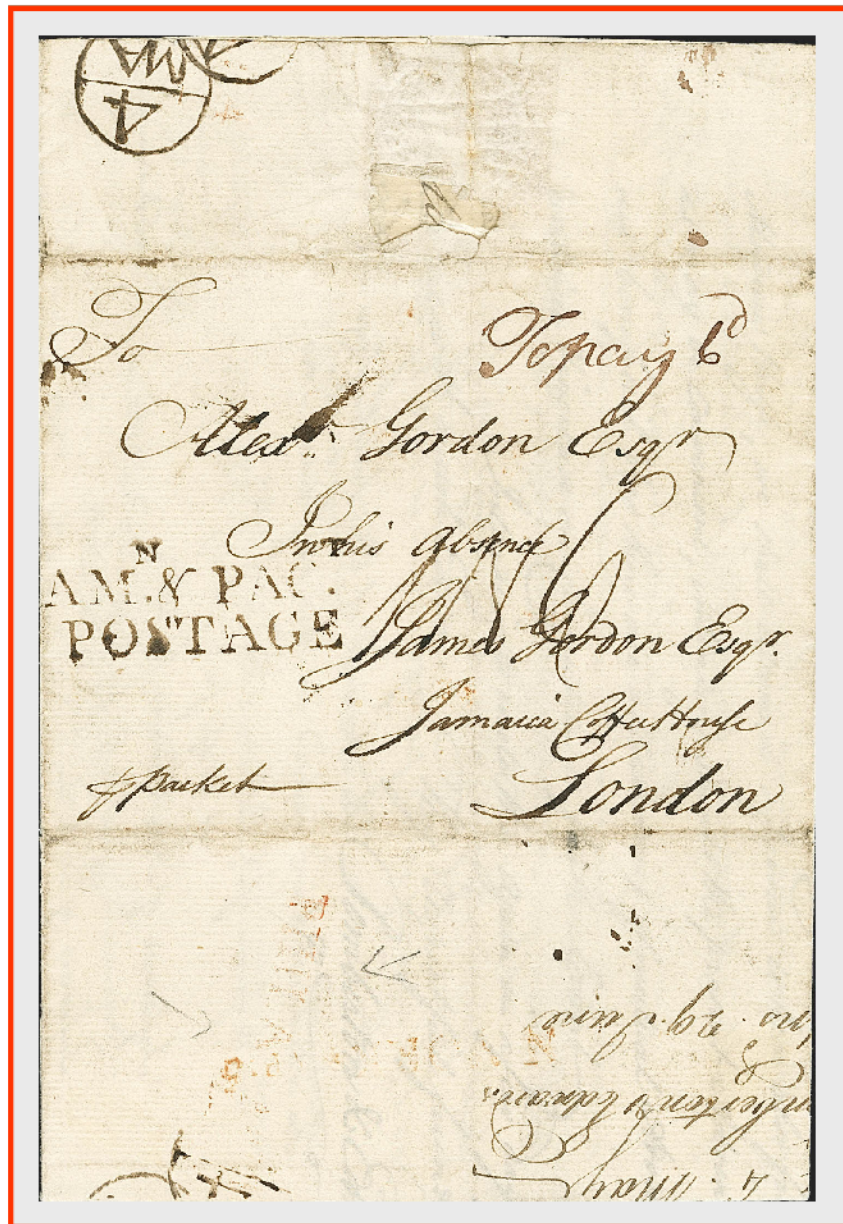 4
MA
To
To pay 6d
Alexr. Gordon Esqr
In his absence
N
AM. & PAC.
POSTAGE
James Gordon Esqr.
Jamaica Coffee House
London
packet
4 May
Edwards
29 June